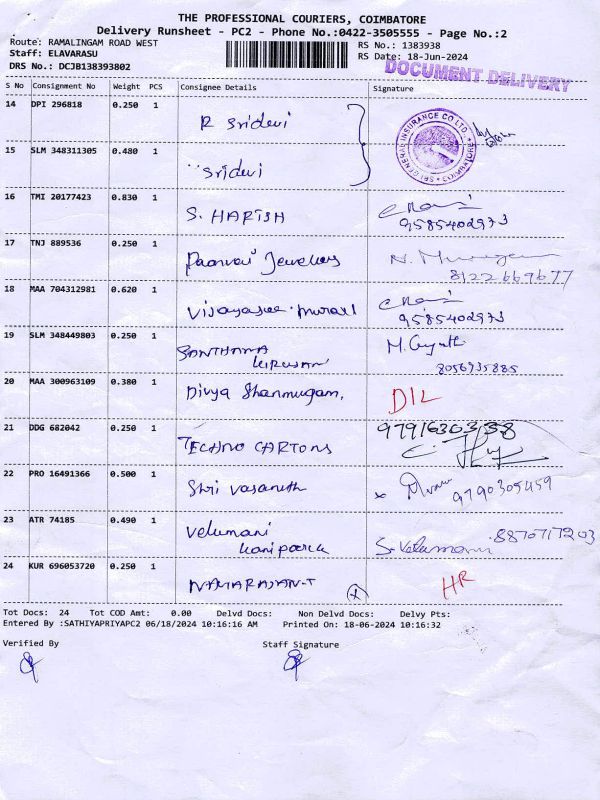 THE PROFESSIONAL COURIERS, COIMBATORE
Delivery Runsheet - PC2 - Phone No.:0422-3505555 - Page No.:2
Route: RAMALINGAM ROAD WEST
RS No.: 1383938
Staff: ELAVARASU
RS Date: 18-Jun-2024
DRS No.: DCJB138393802
DOCUMENT DELIVERY
S No Consignment No Weight PCS Consignee Details Signature
14 DPI 296818 0.250 1 R Sridevi
SRI GENERAL INSURANCE CO LTD. COIMBATORE
15 SLM 348311305 0.480 1 "Sridevi
16 TMI 20177423 0.830 1 S. HARISH
9585402973
17 TNJ 889536 0.250 1 Jewellery
8122669677
18 MAA 704312981 0.620 1
9585402973
19 SLM 348449803 0.250 1 SANTHANA
8056935885
20 MAA 300963109 0.380 1 Divya Shanmugam. DIL
21 DDG 682042 0.250 1 TECHNO CARTONS
9791630338
22 PRO 16491366 0.500 1 Shri Vasanth
9790305459
23 ATR 74185 0.490 1 Velumani
8870717203
24 KUR 696053720 0.250 1 NATARAJAN.T HR
Tot Docs: 24 Tot COD Amt: 0.00 Delvd Docs: Non Delvd Docs: Delvy Pts:
Entered By :SATHIYAPRIYAPC2 06/18/2024 10:16:16 AM Printed On: 18-06-2024 10:16:32
Verified By Staff Signature